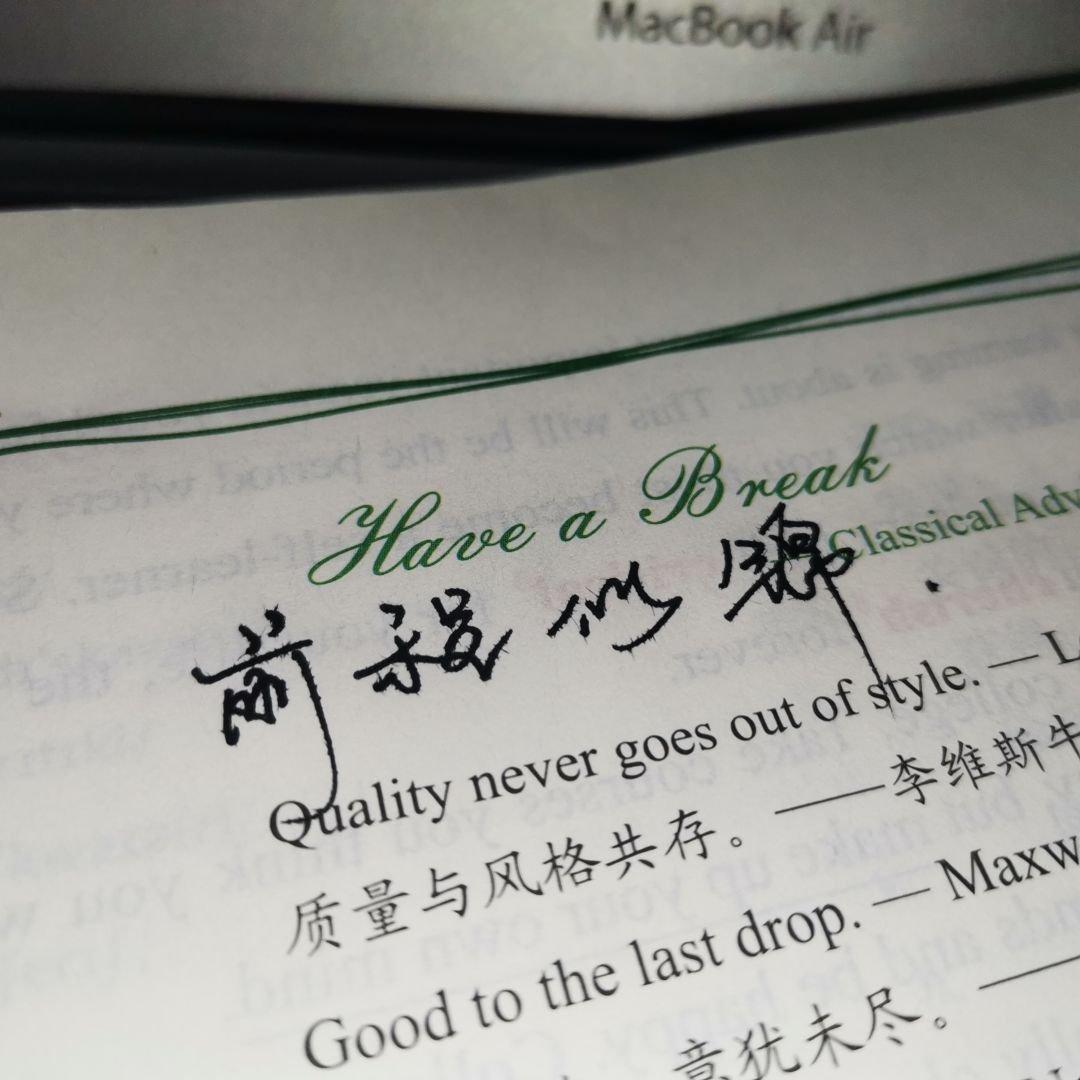 MacBook Air
Have a Break
Classical Adv
前程似锦.
Quality never goes out of style. — L
质量与风格共存。——李维斯牛
Good to the last drop. — Maxw
意犹未尽。—